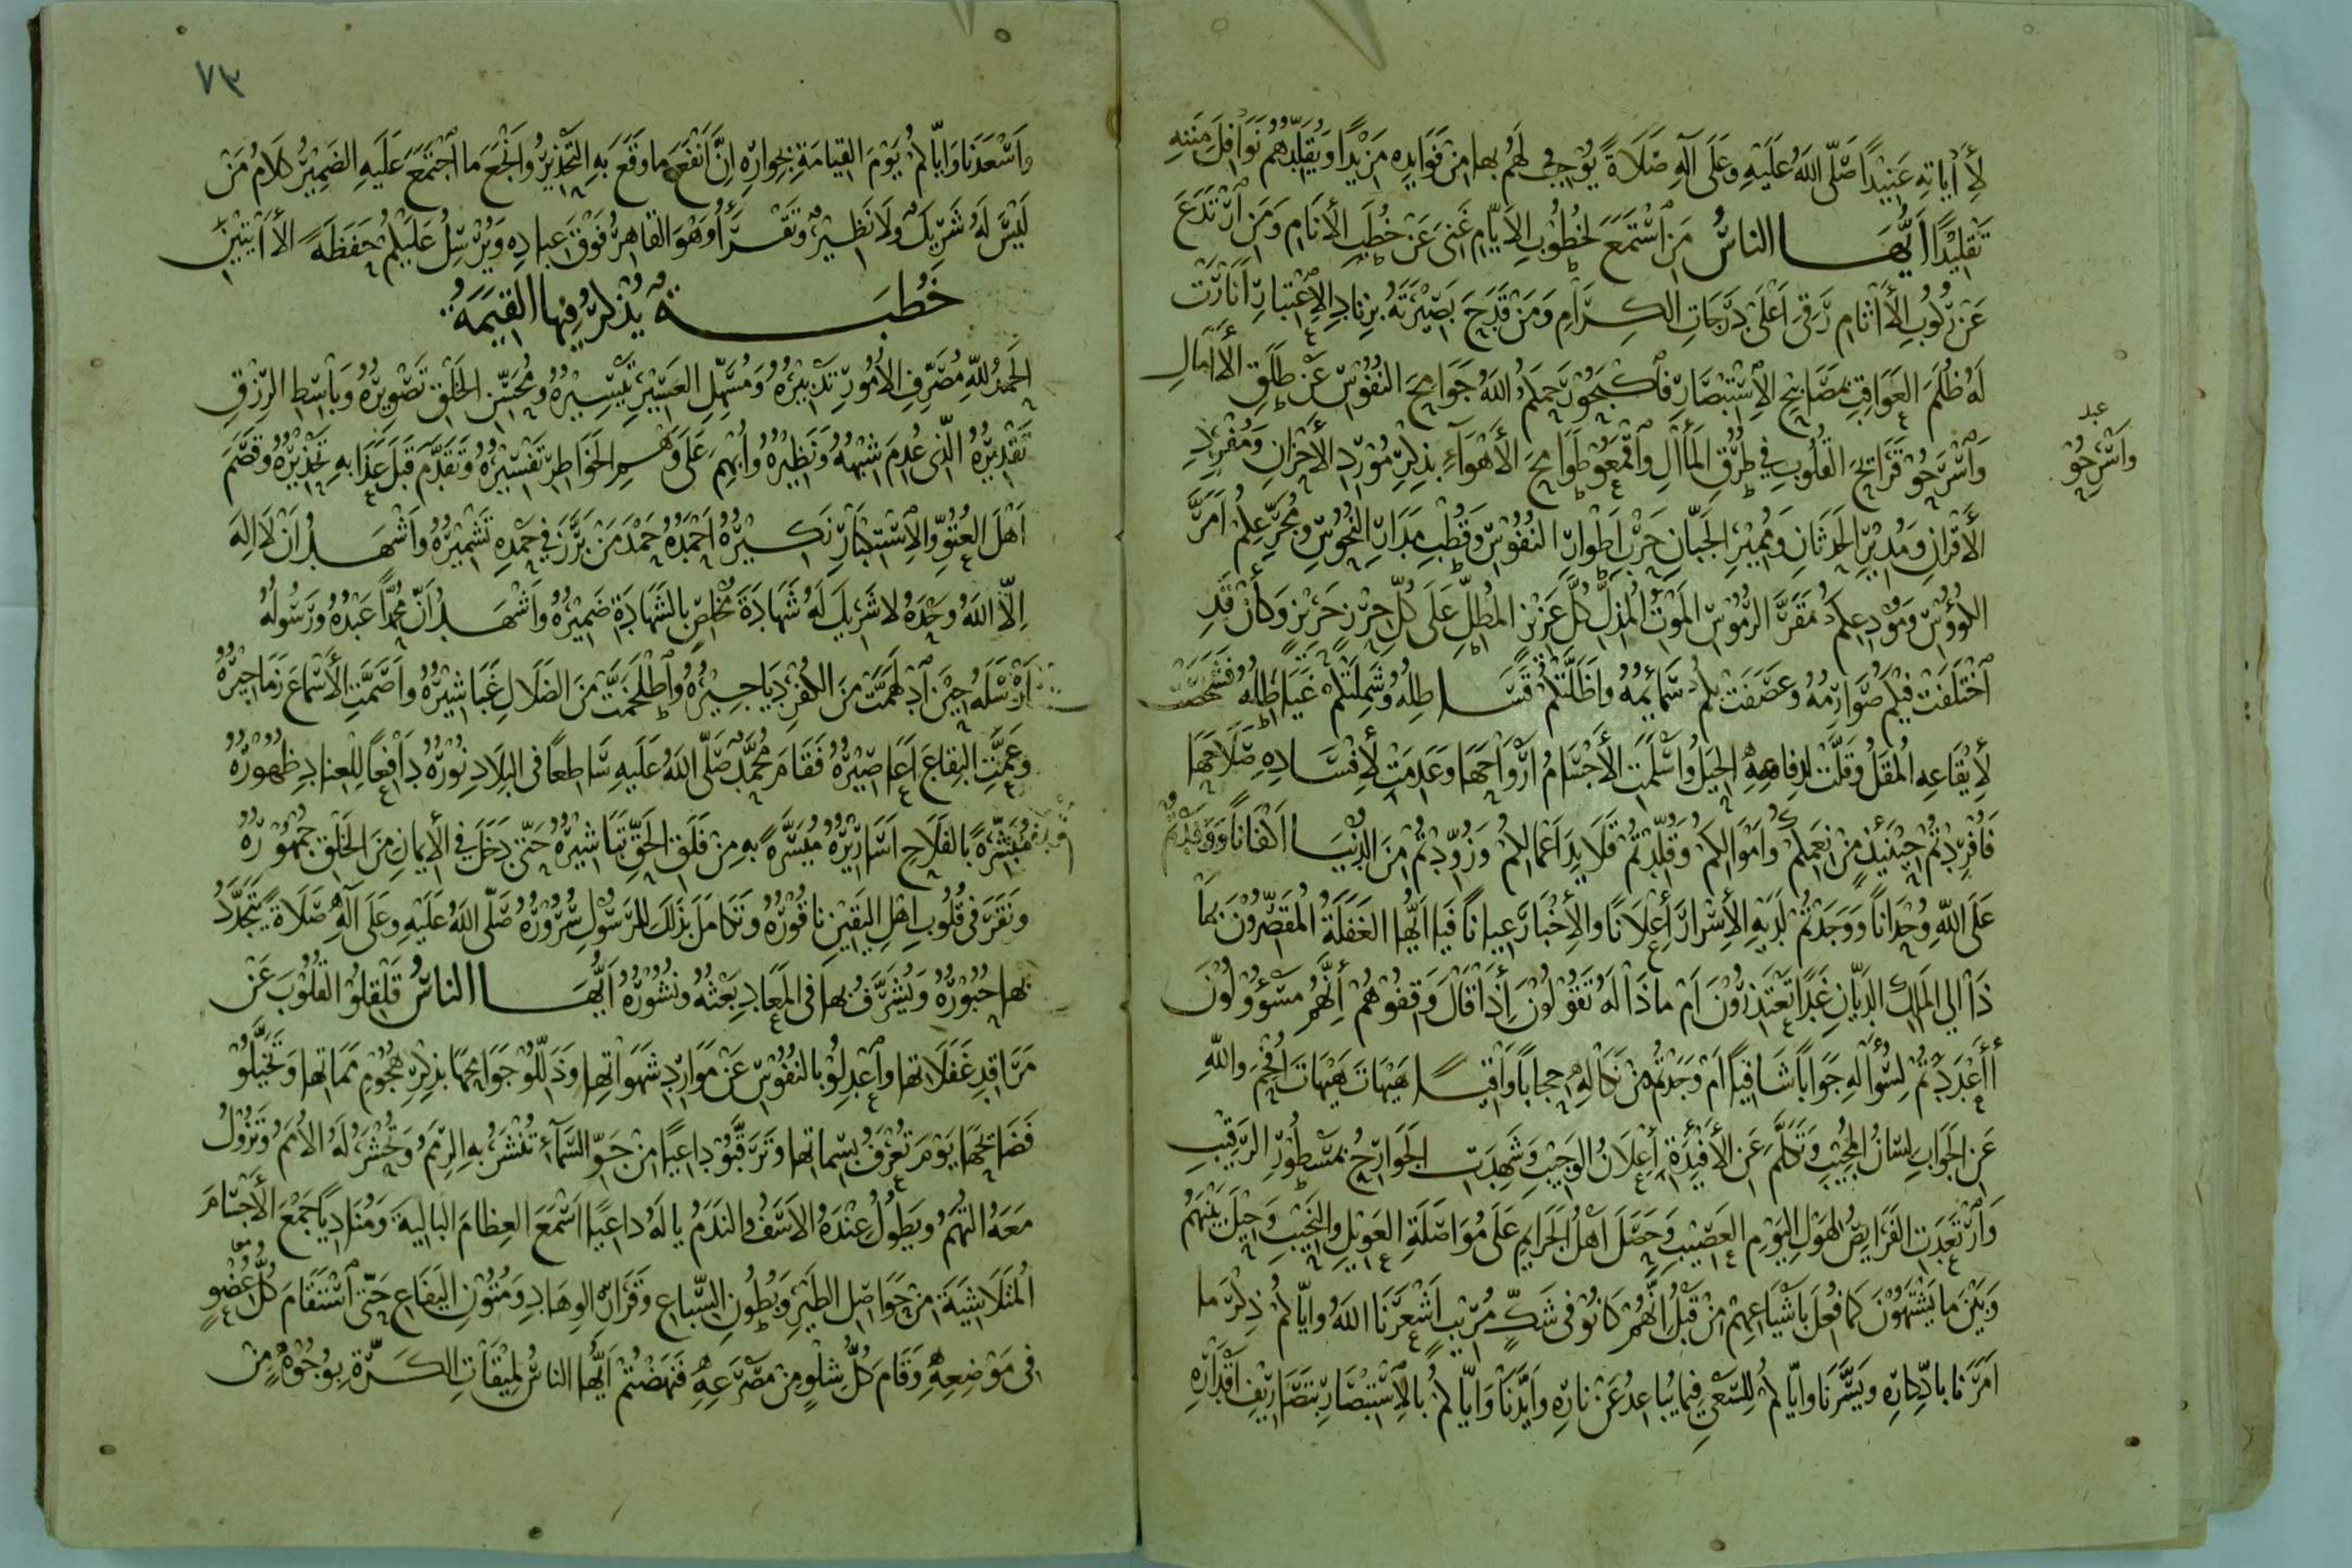 لِأٓيَاتِهِ عَنِيْدًا صَلَّى اللهُ عَلَيْهِ وَعَلَى آلِهِ صَلَاةً يُوْجِبُ لَهُمْ بِهَا مِنْ فَوَايِدِهِ مَزِيْدًا وَيُقَلِّدُهُمْ نَوَافِلَ مِنَنِهِ
تَقْلِيْدًا أَيُّهَا النَّاسُ مَنِ اسْتَمَعَ لِخُطُوْبِ الْأَيَّامِ غَنِيَ عَنْ خُطَبِ الْأَنَامِ وَمَنِ ارْتَدَعَ
عَنْ رُكُوبِ الْأٰثَامِ رَقِيَ أَعْلَى دَرَجَاتِ الكِرَامِ وَمَنْ قَدَحَ بَصِيْرَتَهُ بِزِنَادِ الْاِعْتِبَارِ أَنَارَتْ
لَهُ ظُلَمَ العَوَاقِبِ مَصَابِيْحُ الْاِسْتِبْصَارِ فَاكْبَحُوْ رَحِمَكُمُ اللهُ جَوَامِحَ النُّفُوْسِ عَنْ طَلَقِ الْأٰمَالِ
وَاسْرَحُوْ قَرَائِحَ القُلُوبِ فِي طُرُقِ الْمَأٰلِ وَاقْمَعُوْ طَوَامِحَ الْأَهْوَآءِ بِذِكْرِ مُوْرِدِ الْأَحْزَانِ وَمُفْرِدِ
عبد
وَاسْرِحُوْ
الْأَقْرَانِ وَمُدِيْرِ الْحَدَثَانِ وَمُمِيْزِ الْجَبَانِ حَرْبِ أَطْوَارِ النُّفُوْسِ وَقُطْبِ مَدَارِ النُّحُوْسِ وَمُجَرِّعِكُمْ أَمَرَّ
الكُؤُوْسِ وَمُوْدِعِكُمْ مَقَرَّ الرُّمُوْسِ المَوْتِ الْمُذِلِّ كُلَّ عَزِيْزٍ الْمُطِلِّ عَلَى كُلِّ حِرْزٍ حَرِيْزٍ وَكَأَنْ قَدِ
اخْتَلَفَتْ فِيْكُمْ صَوَارِمُهُ وَعَصَفَتْ بِكُمْ سَمَائِمُهُ وَأَظَلَّتْكُمْ قَسَاطِلُهُ وَشَمِلَتْكُمْ غَيَاطِلُهُ فَشَخَصَتْ
لِإِيْقَاعِهِ الْمُقَلُ وَقَلَّتْ لِدِفَاعِهِ الحِيَلُ وَأَسْلَمَتِ الْأَجْسَامُ أَرْوَاحَهَا وَعَدِمَتْ لِإِفْسَادِهِ صَلَاحَهَا
فَأُفْرِدْتُمْ حِيْنَئِذٍ مِنْ نِعَمِكُمْ وَأَمْوَالِكُمْ وَقُلِّدْتُمْ قَلَايِدَ أَعْمَالِكُمْ وَزُوِّدْتُمْ مِنَ الدُّنْيَا أَكْفَانًا وَوَفَدْتُمْ
عَلَى اللهِ وُحْدَانًا وَوَجَدْتُمْ لَدَيْهِ الْأِسْرَارَ أِعْلَانًا وَالْأِخْبَارَ عِيَانًا فَيَا أَيُّهَا الغَفَلَةُ الْمُقَصِّرُوْنَ بِمَا
ذَا إِلَى المَلِكِ الدَّيَّانِ غَدًا تَعْتَذِرُوْنَ أَمْ مَا ذَا لَهُ تَقُوْلُوْنَ إِذَا قَالَ وَقِفُوْهُمْ إِنَّهُمْ مَسْؤُوْلُوْنَ
أَأَعْدَدْتُمْ لِسُؤَالِهِ جَوَابًا شَافِيًا أَمْ وَجَدْتُمْ مِنْ نَكَالِهِ حِجَابًا وَاقِيًا هَيْهَاتَ هَيْهَاتَ أُفْحِمَ وَاللهِ
عَنِ الْجَوَابِ لِسَانُ الْمُجِيْبِ وَتَكَلَّمَ عَنِ الْأَفْئِدَةِ إِعْلَانُ الوَجِيْبِ وَشَهِدَتِ الْجَوَارِحُ بِمَسْطُوْرِ الرَّقِيْبِ
وَارْتَعَدَتِ الفَرَايِصُ لِهَوْلِ اليَوْمِ العَصِيْبِ وَحَصَلَ أَهْلُ الْجَرَايِمِ عَلَى مُوَاصَلَةِ العَوِيْلِ وَالنَّحِيْبِ وَحِيْلَ بَيْنَهُمْ
وَبَيْنَ مَا يَشْتَهُوْنَ كَمَا فُعِلَ بِأَشْيَاعِهِمْ مِنْ قَبْلُ إِنَّهُمْ كَانُوْ فِى شَكٍّ مُرِيْبٍ أَشْعَرَنَا اللهُ وَإِيَّاكُمْ ذِكْرَ مَا
أَمَرَنَا بِادِّكَارِهِ وَيَسَّرَنَا وَإِيَّاكُمْ لِلسَّعْيِ فِيْمَا يُبَاعِدُ عَنْ نَارِهِ وَأَيَّدَنَا وَإِيَّاكُمْ بِالْاِسْتِبْصَارِ بِتَصَارِيْفِ أَقْدَارِهِ
٧٣
وَأَسْعَدَنَا وَإِيَّاكُمْ يَوْمَ القِيَامَةِ بِجِوَارِهِ إِنَّ أَنْفَعَ مَا وَقَعَ بِهِ التَّحْذِيْرُ وَأَنْجَعَ مَا اجْتَمَعَ عَلَيْهِ الضَمِيْرُ كَلَامُ مَنْ
لَيْسَ لَهُ شَرِيْكٌ وَلَا نَظِيْرٌ وَتَقْرَأُ وَهُوَ القَاهِرُ فَوْقَ عِبَادِهِ وَيُرْسِلُ عَلَيْكُمْ حَفَظَةً الْأٰيَتَيْنِ
خُطْبَةٌ يُذْكَرُ فِيْهَا القِيَمَةُ
الحَمْدُ لِلّهِ مُصَرِّفِ الْأُمُورِ تَدْبِيْرُهُ وَمُسَهِّلِ العَسِيْرِ تَيْسِيْرُهُ وَمُحَسِّنِ الْخَلْقِ تَصْوِيْرُهُ وَبَاسِطِ الرِّزْقِ
تَقْدِيْرُهُ الَّذِى عُدِمَ شِبْهُهُ وَنَظِيْرُهُ وَأُبْهِمَ عَلَى وَهْمِ الخَوَاطِرِ تَفْسِيْرُهُ وَتَقَدَّمَ قَبْلَ عَذَابِهِ تَحْذِيْرُهُ وَقَصَمَ
أَهْلَ العُتُوِّ وَالْاِسْتِكْبَارِ نَكِيْرُهُ أَحْمَدُهُ حَمْدَ مَنْ بَرَّزَ فِي حَمْدِهِ تَشْمِيْرُهُ وَأَشْهَدُ أَنْ لَا إِلَهَ
إِلَّا اللهُ وَحْدَهُ لَا شَرِيكَ لَهُ شَهَادَةَ مُخْلِصٍ بِالشَهَادَةِ ضَمِيْرُهُ وَأَشْهَدُ أَنَّ مُحَمَّدًا عَبْدُهُ وَرَسُولُهُ
أَرْسَلَهُ حِيْنَ ادْلَهَمَّتْ مِنَ الكُفْرِ دَيَاجِيْرُهُ وَاطْلَخَمَّتْ مِنَ الضَلَالِ غَبَاشِيْرُهُ وَأَصَمَّتِ الْأَسْمَاعَ زَمَاجِيْرُهُ
وَعَمَّتِ البِقَاعَ أَعَاصِيْرُهُ فَقَامَ مُحَمَّدٌ صَلَّى اللهُ عَلَيْهِ سَاطِعًا فِى البِلَادِ نُوْرُهُ دَافِعًا لِلْعِنَادِ ظُهُوْرُهُ
مُبَشِّرَةً بِالفَلَاحِ أَسَارِيْرُهُ مُيَسَّرَةً بِهِ مِنْ فَلَقِ الحَقِّ تَبَاشِيْرُهُ حَتَّى دَخَلَ فِي الْأِيمَانِ مِنَ الخَلْقِ جُمْهُوْرُهُ
وَنَقَرَ فِى قُلُوبِ أَهْلِ اليَقِيْنِ نَاقُوْرُهُ وَتَكَامَلَ بِذَلِكَ لِلرَّسُوْلِ سُرُوْرُهُ صَلَّى اللهُ عَلَيْهِ وَعَلَى آلِهِ صَلَاةً يَتَجَدَّدُ
بِهَا حُبُوْرُهُ وَيُشَرَّفُ بِهَا فِى المَعَادِ بَعْثُهُ وَنُشُوْرُهُ أَيُّهَا النَّاسُ قَلْقِلُوْا القُلُوْبَ عَنْ
مَرَاقِدِ غَفَلَاتِهَا وَاعْدِلُوْ بِالنُفُوْسِ عَنْ مَوَارِدِ شَهَوَاتِهَا وَذَلِّلُوْ جَوَامِحَهَا بِذِكْرِ هُجُوْمِ مَمَاتِهَا وَتَخَيَّلُوْ
فَضَائِحَهَا يَوْمَ تُعْرَفُ بِسِمَاتِهَا وَتَرَقَّبُوْ دَاعِيًا مِنْ جَوِّ السَّمَآءِ تُنْشَرُ بِهِ الرِّمَمُ وَتُحْشَرُ لَهُ الْأُمَمُ وَتَزُوْلُ
مَعَهُ التُهَمُ وَيَطُوْلُ عِنْدَهُ الأَسَفُ وَالنَدَمُ يَا لَهُ دَاعِيًا أَسْمَعَ العِظَامَ البَالِيَةَ وَمُنَادِيًا جَمَعَ الْأَجْسَامَ
الْمُتَلَاشِيَةَ مِنْ حَوَاصِلِ الطَيْرِ وَبُطُونِ السِّبَاعِ وَقَرَارِ الوِهَادِ وَمُتُوْنِ اليَفَاعِ حَتَّى اسْتَقَامَ كُلُّ عُضْوٍ
فِى مَوْضِعِهِ وَقَامَ كُلُّ شِلْوٍ مِنْ مَصْرَعِهِ فَنَهَضْتُمْ أَيُّهَا النَاسُ لِمِيْقَاتِ الكَرَّةِ بِوُجُوْهٍ مِنْ